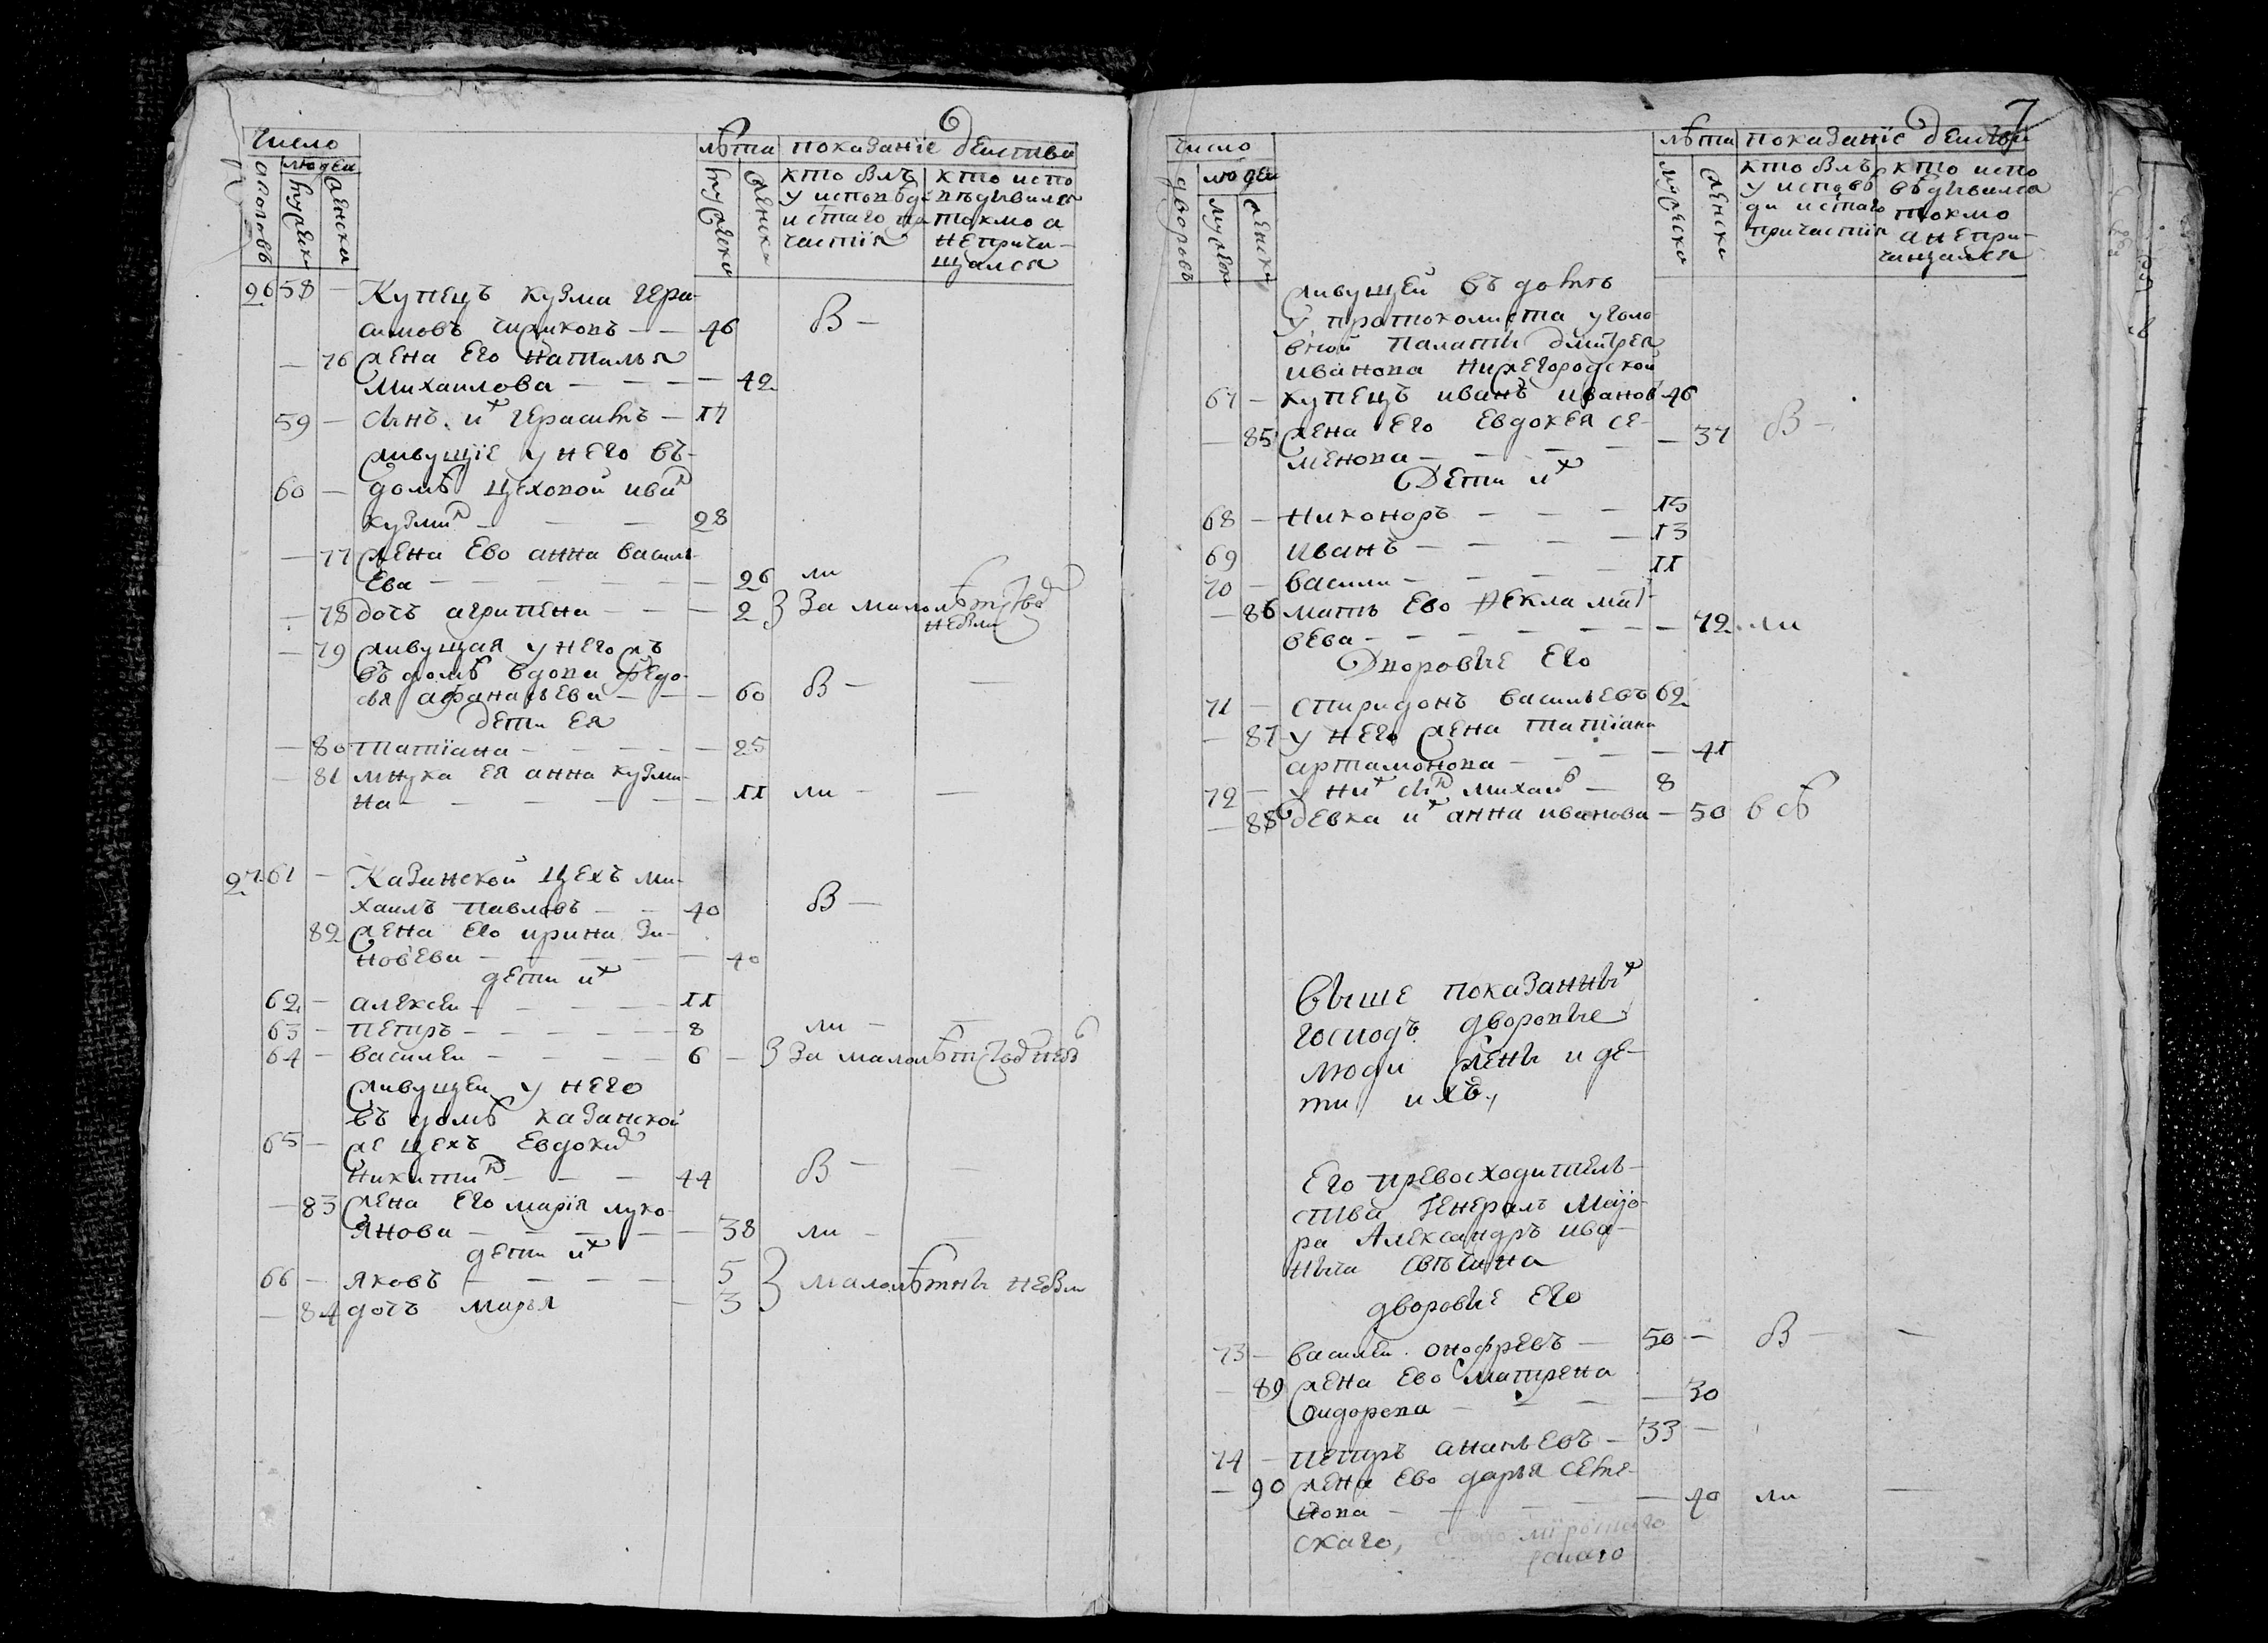 число
лѣта показанïе деиства
людеи
дворовъ
мужеска
женска
мужеска
женска
кто былъ
у исповѣди
и с̃таго при
частïя
кто испо
вѣдывался
токмо а
непричи-
щался
26 58 — Купецъ кузма гера-
симовъ чижиковъ — — 46 В —
— 76 жена его наталья
михаилова — — — — 42
59 — сынъ их герасимъ — 17
живущïе у него въ-
60 — домѣ цеховой иван
кузмин — — — 28
— 77 жена ево анна василь-
ева — — — — 26 ли
— 78 дочь агрипена — — — 2 За малолѣтство
невли
— 79 живущая у него жъ
въ домѣ вдова Федо-
сья афанасьева — — — 60 В — —
дети ея
— 80 татïана — — — — 25
— 81 мнука ея анна кузми-
на — — — — — 11 ли — —
27 61 — Казанской цехъ ми-
хаилъ павловъ — — 40 В —
82 жена его ирина зи-
новьева — — — — 40
дети их
62 — алексеи — — — — 11
63 — петръ — — — — 8 ли — —
64 — василеи — — — — 6 — За малолѣтством невз
живущеи у него
въ домѣ казанской
65 — же цехъ Евдоким
никитин — — — 44 В — —
— 83 жена его марïя луко-
янова — — — — 38 ли — —
дети их
66 — яковъ — — — — 5 малолѣтны невли
— 84 дочь марья — 3
7
число
лѣта показанïе деиства
людеи
дворовъ
мужеска
женска
мужеска
женска
кто былъ
у исповѣ
ди и с̃таго
причастïя
кто испо
вѣдывался
токмо
а непри-
чищался
живущеи въ домѣ
у протоколиста уголо
вной палаты дмитрея
иванова нижегородской
67 — купецъ иванъ иванов 46
— 85 жена его Евдокея се- — 37 В —
менова — — — —
Дети их
68 — Никоноръ — — — 15
69 иванъ — — — — 13
70 — васили — — — — 11
— 86 мать ево Фекла мат-
вева — — — — — — 72 ли
Дворовые его
71 — спиридонъ васильевъ 62
— 87 у него жена татïана
артамонова — — — — 41
72 — у них сын михаи — 8
— 88 девка их анна иванова — 50 в сѣ
Выше показанных
господъ дворовые
люди жены и де-
ти ихъ,
Его превосходитель-
ства генералъ маïо-
ра Александръ ива-
ныча свѣчина
дворовые его
73 — василеи онофревъ — 50 — В — —
— 89 жена ево матрена
сидорова — — — — 30
74 — петръ ананьевъ — 33 —
— 90 жена ево дарья семе-
нова — — — — 40 ли —
скаго,